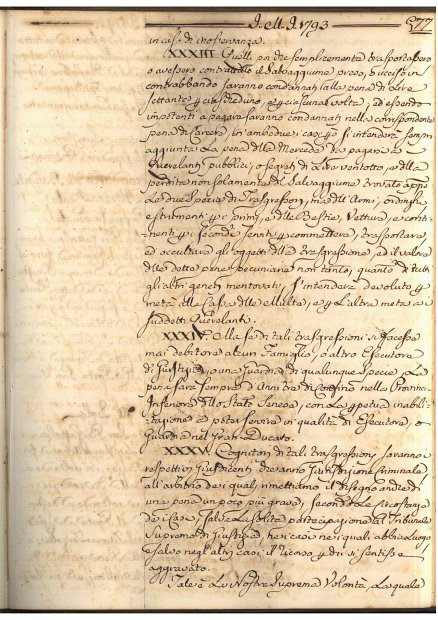 J. M. J. 1793 577
in casi di inosservanza.
XXXIII. Quelli poi che semplicemente trasportassero
o avessero contrattato il Salvaggiume preso, o ucciso in
contrabbando saranno condannati alla pena di Lire
settanta per ciascheduno, e per ciascuna volta, ed essendo
impotenti a pagare saranno condannati nella corrispondente
pena di Carcere, in ambedue i casi per si intenderà sempre
aggiunta La pena della Mercede da pagarsi a
Querelanti pubblici, o segreti di Lire ventotto, e della
perdita non solamente del Salvaggiume trovato appo
Le due Specie di Trasgressori, ma dell'Armi, ordinghi
e strumenti per i primi, e delle Bestie, Vetture, e conti-
nenti per i secondi serviti per commettere, trasportare,
ed occultare gli oggetti della trasgressione, ed il valore
delle dette pene pecuniarie non tanto, quanto di tutti
gli altri generi mentovati, s'intenderà devoluto per
metà alla Cassa delle Multe, e per L'altra metà ai
suddetti Querelanti.
XXXIV. Alla se di tali trasgressioni si facesse
mai debitore alcun Famiglio, o altro Esecutore
di Giustizia, o una Guardia di qualunque Specie, La
pena sarà sempre d'Anni tre di Confino nella Provincia
Inferiore dello Stato Senese, con La perpetua inabili-
tazione a poter servire in qualità di Esecutore, o
Guardia nel Gran-Ducato.
XXXV. Cognitori di tali trasgressioni saranno i
respettivi Giusdicenti che avranno Giurisdizione Criminale
all'arbitrio dei quali rimettiamo il disegno anche di
una pena un poco più grave, secondo Le circostanze
de i Casi, salva La solita partecipazione al Tribunale
Supremo di Giustizia, nei casi nei quali abbia Luogo
e salvo negl'altri casi il Ricorso per chi si sentisse
aggravato.
Tale è La Nostra Suprema Volontà, La quale